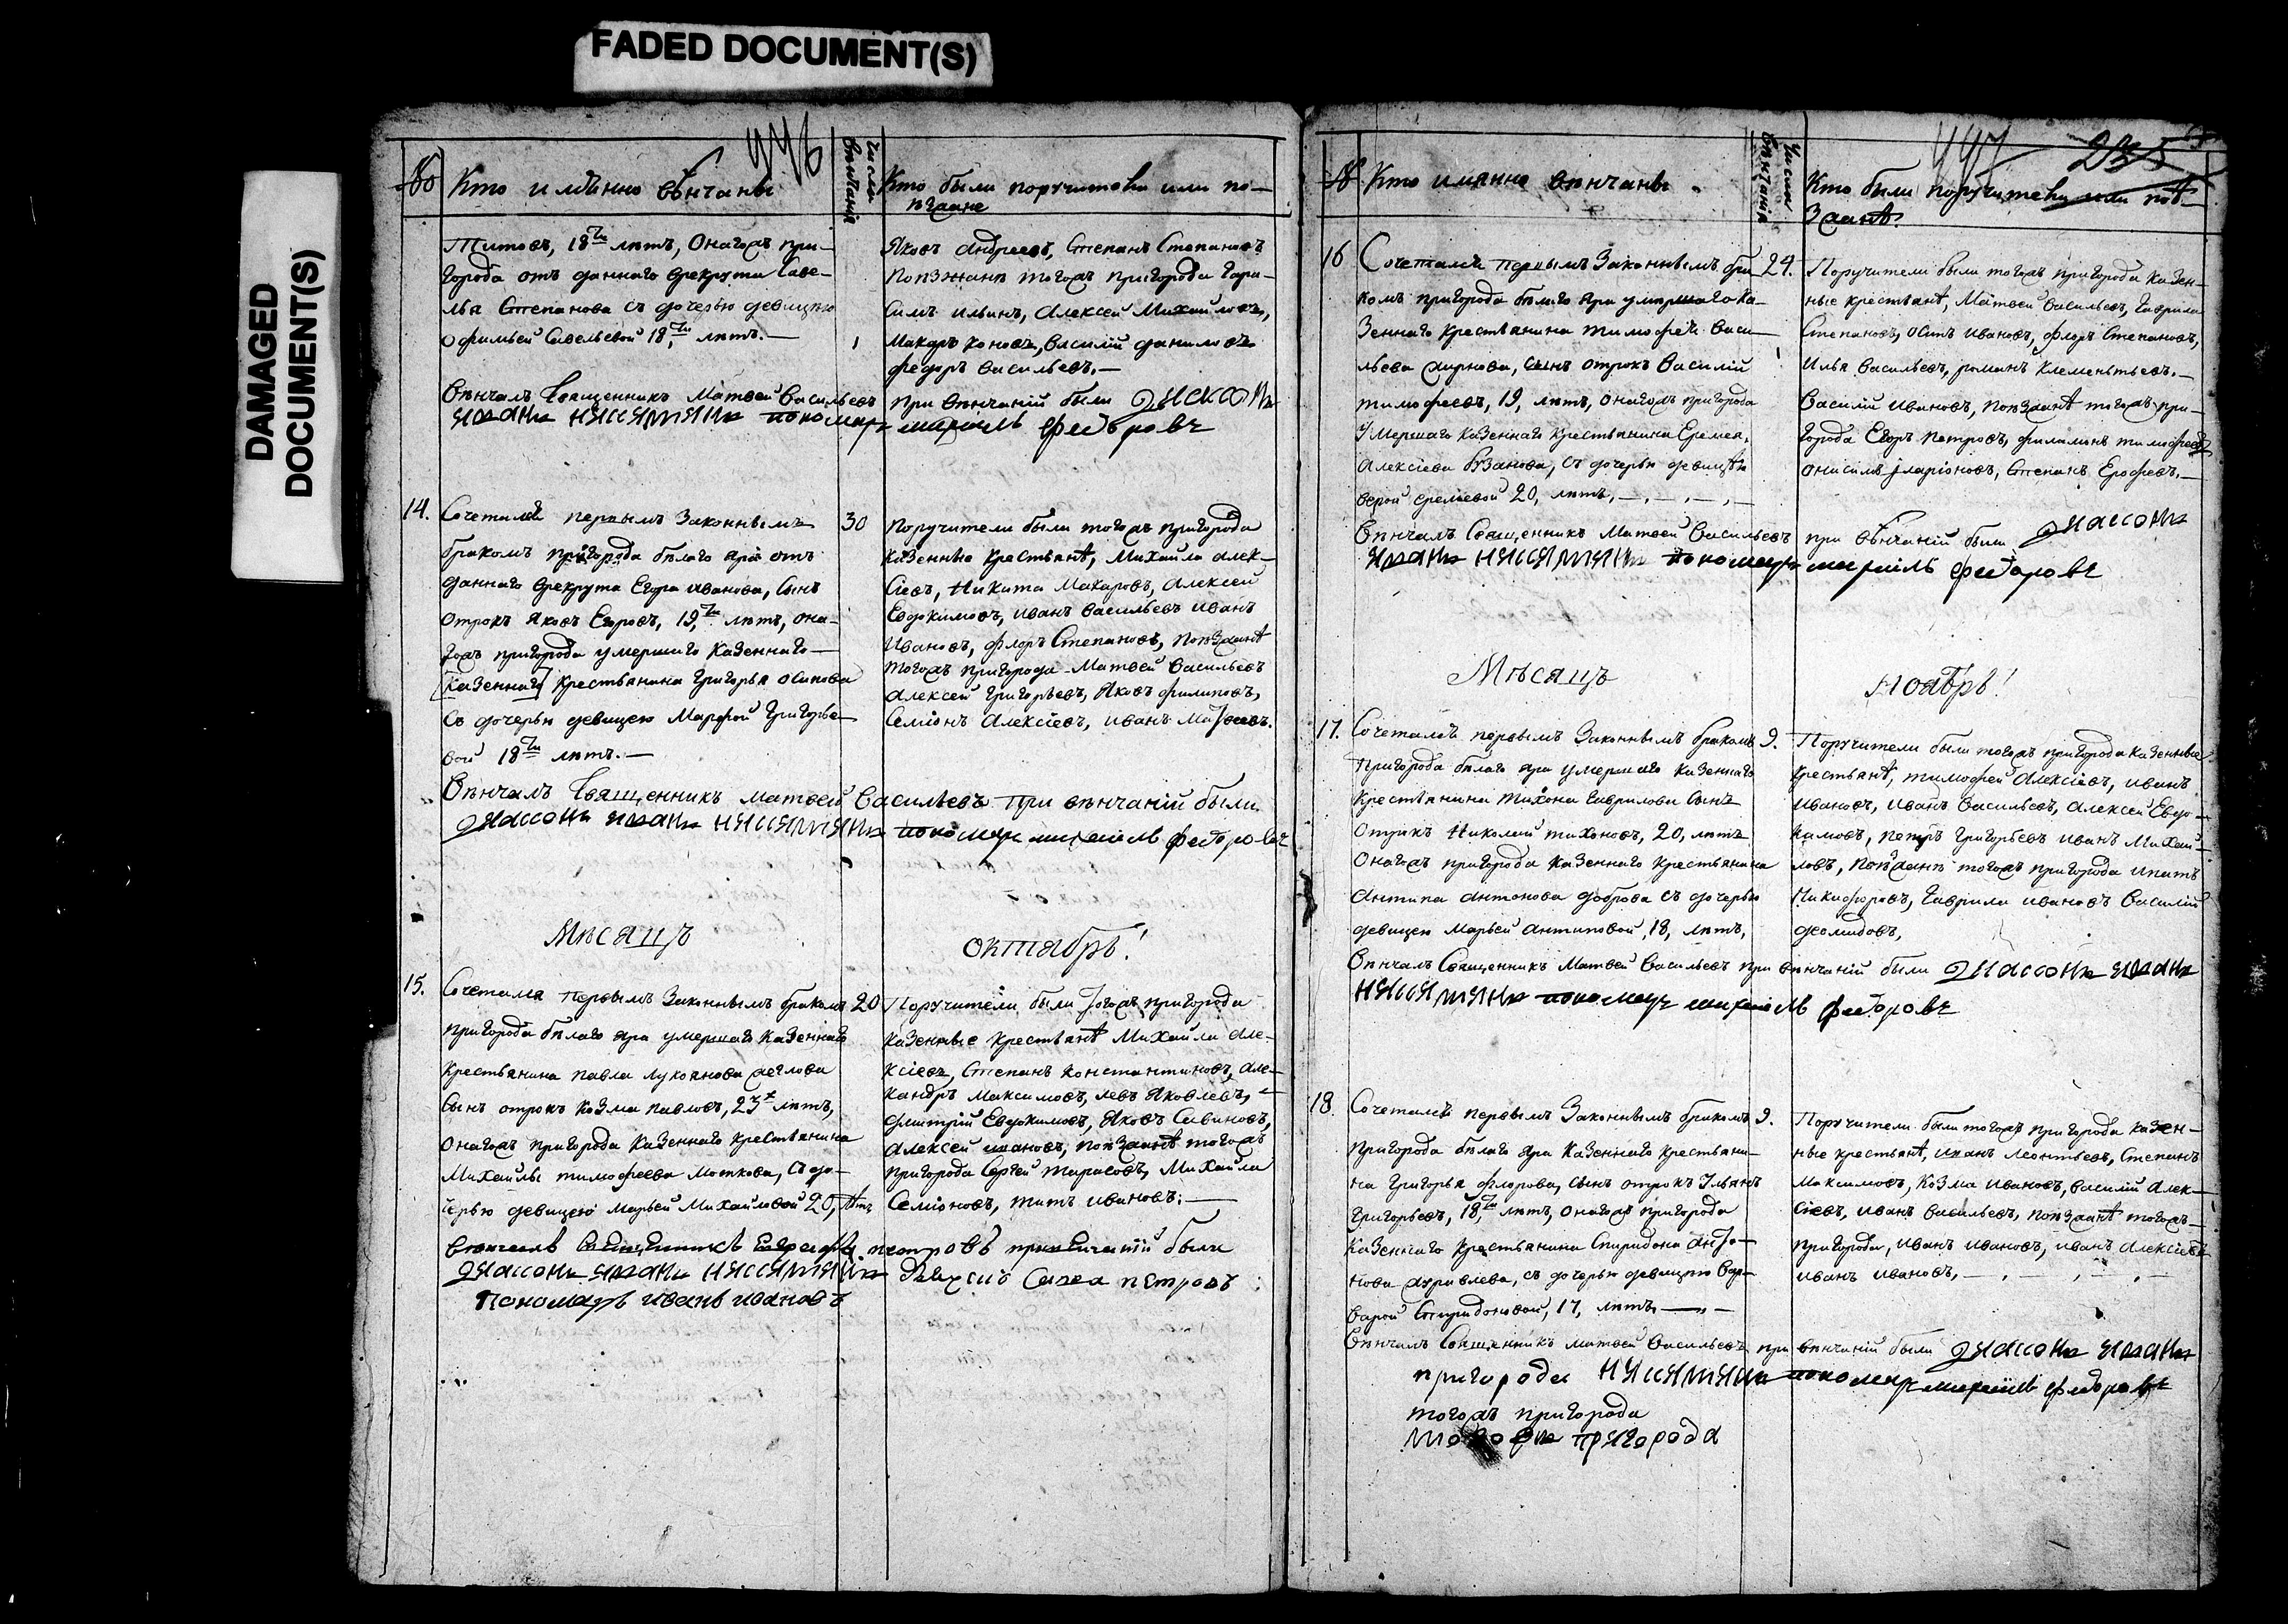 FADED DOCUMENT(S)
DAMAGED
DOCUMENT(S)
446
Кто имѣнно вѣнчаны
Число
вѣнчанiя
Кто были поручители или по-
ѣзжане
Титовъ, 18ти лѣтъ, Онагожъ при-
города отъ даннаго врекруты Саве-
лья Степанова съ дочерью девицею
Офимьей Савельевой 18ти лѣтъ.—
Яковъ Андреевъ, Степанъ Степановъ
Поѣзжанѣ тогожъ пригорода Гара-
симъ Ильинъ, Алексей Михайловъ,
Макаръ Коновъ, Василiй Даниловъ
Федоръ Васильевъ.—
Вѣнчалъ Священникъ Матвей Васильевъ при вѣнчанiй были дьяконъ
пономарь Федоровъ
14.
Сочетался первымъ Законнымъ
бракомъ пригорода бѣлаго яра отъ
даннаго врекруты Егора Иванова, Сынъ
отрокъ Яковъ Егоровъ, 19,ти лѣтъ, она-
гожъ пригорода умершаго Казеннаго—
Казеннаго Крестьянина Григорья Осипова
Съ дочерью девицею Марфой Григорье-
вой 18ти лѣтъ.—
30
Поручители были тогожъ пригорода
Казенные Крестьянѣ, Михайла Алек-
сiевъ, Никита Макаровъ, Алексей
Евдокимовъ, Иванъ Васильевъ Иванъ
Ивановъ, Флоръ Степановъ, Поѣзжанѣ
тогожъ пригорода Матвей Васильевъ
Алексей Григорьевъ, Яковъ Филиповъ,
Семiонъ Алексiевъ, Иванъ Матвеевъ.
Вѣнчалъ Священникъ Матвей Васильевъ при вѣнчанiй были
дьяконъ пономарь Федоровъ
Мѣсяцъ Октябрь!
15.
Сочетался Первымъ Законнымъ бракомъ
пригорода бѣлаго яра умершаго Казеннаго
Крестьянина Павла Лукоянова
Сынъ отрокъ Козма Павловъ, 23х лѣтъ,
Онагожъ пригорода Казеннаго Крестьянина
Михайлы Тимофеева Моткова, Съ до-
черью девицею Марьей Михайловой 20, лѣтъ
20
Поручители были тогожъ пригорода
Казенные Крестьянѣ Михайла Але-
ксiевъ, Степанъ Константиновъ, Але-
ксандръ Максимовъ, Левъ Яковлевъ,
Дмитрiй Евдокимовъ, Яковъ Савиновъ,
Алексей Ивановъ, поѣзжанѣ тогожъ
пригорода Сергей Тарасовъ, Михайла
Семiоновъ, Титъ Ивановъ.—
Вѣнчалъ Священникъ Петровъ при вѣнчанiй были
дьяконъ Петровъ
Пономарь Иванъ Ивановъ
447
235
Кто имянно вѣнчаны.
Число
вѣнчанiя
Кто были поручители или поѣ-
зжанѣ.
16
Сочетался первымъ Законнымъ бра-
комъ пригорода бѣлаго яра умершаго Ка-
зеннаго Крестьянина Тимофея Васи-
льева Аирнова, Сынъ отрокъ Василiй
Тимофеевъ, 19, лѣтъ, онагожъ пригорода
Умершаго Казеннаго Крестьянина Еремея,
Алексiева Бузанова, Съ дочерью девицею
Верой Еремевой 20, лѣтъ,—,—,—,—
24.
Поручители были тогожъ пригорода Казен-
ные Крестьянѣ, Матвей Васильевъ, Гаврила
Степановъ, Осипъ Ивановъ, Флоръ Степановъ,
Илья Васильевъ, Романъ Клементьевъ.—
Василiй Ивановъ, Поѣзжанѣ тогожъ при-
города Егоръ Петровъ, Филимонъ Тимофеевъ
Онисимъ Iларiоновъ, Степанъ Ерофеевъ.—
Вѣнчалъ Священникъ Матвей Васильевъ при вѣнчанiй были дьяконъ
пономарь Федоровъ
Мѣсяцъ Ноябрь!
17.
Сочетался первымъ Законнымъ бракомъ
Пригорода бѣлаго яра умершаго Казеннаго
Крестьянина Тихона Гаврилова Сынъ
отрокъ Николай Тихоновъ, 20, лѣтъ
Онагожъ пригорода Казеннаго Крестьянина
Антипа Антонова Доброва съ дочерью
девицею Марьей Антиповой, 18, лѣтъ,
9.
Поручители были тогожъ пригорода Казенные
Крестьянѣ, Тимофей Алексiевъ, Иванъ
Ивановъ, Иванъ Васильевъ, Алексей Евдо-
кимовъ, Петръ Григорьевъ Иванъ Михай-
ловъ, Поѣзжанѣ тогожъ пригорода Ипатъ
Никифоровъ, Гаврила Ивановъ Василiй
Деомидовъ,
Вѣнчалъ Священникъ Матвей Васильевъ при вѣнчанiй были дьяконъ
пономарь Федоровъ
18.
Сочетался первымъ Законнымъ бракомъ
Пригорода бѣлаго яра Казеннаго Крестьяни-
на Григорья Флорова, Сынъ отрокъ Ульянъ
Григорьевъ, 18,ти лѣтъ, онагожъ пригорода
Казеннаго Крестьянина Спиридона Анто-
нова Журавлева, съ дочерью девицею Вар-
варой Спиридоновой, 17, лѣтъ,—,—
9.
Поручители были тогожъ пригорода Казен-
ные Крестьянѣ, Иванъ Леонтьевъ, Степанъ
Максимовъ, Козма Ивановъ, Василiй Алек-
сiевъ, Иванъ Васильевъ, поѣзжанѣ тогожъ—
пригорода, Иванъ Ивановъ, Иванъ Алексiевъ
Иванъ Ивановъ,—,—,—,—
Вѣнчалъ Священникъ Матвей Васильевъ при вѣнчанiй были дьяконъ
пригорода пономарь Федоровъ
тогожъ пригорода
пригорода